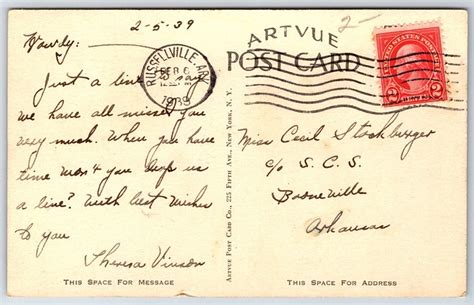 2-5-39
Howdy:
Just a line to say
we have all missed you
very much. When you have
time won't you drop us
a line? With best wishes
to you
Theresa Vinson
THIS SPACE FOR MESSAGE
RUSSELLVILLE, ARK.
FEB 6
1939
ARTVUE POST CARD CO., 225 FIFTH AVE., NEW YORK, N. Y.
2-
ARTVUE
POST CARD
UNITED STATES POSTAGE
2 CENTS 2
Miss Cecil Stockburger
c/o S. C. S.
Booneville
Arkansas
THIS SPACE FOR ADDRESS